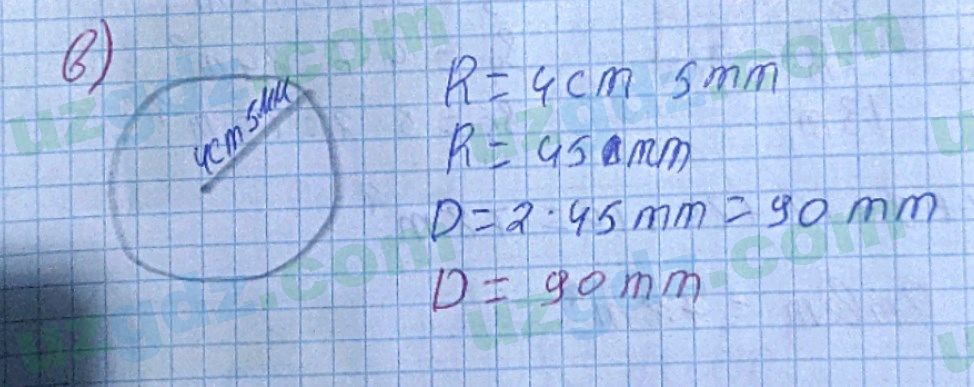 в)
4cm 5мм
R = 4cm 5mm
R = 45 mm
D = 2 · 45 mm = 90 mm
D = 90 mm
uzgdz.com
uzgdz.com
uzgdz.com
uzgdz.com